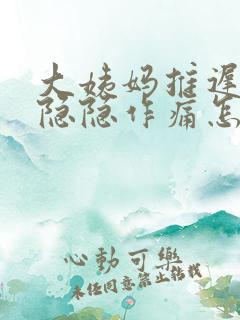 大姨妈推迟
隐隐作痛怎
心動可樂
未经同意禁止转载